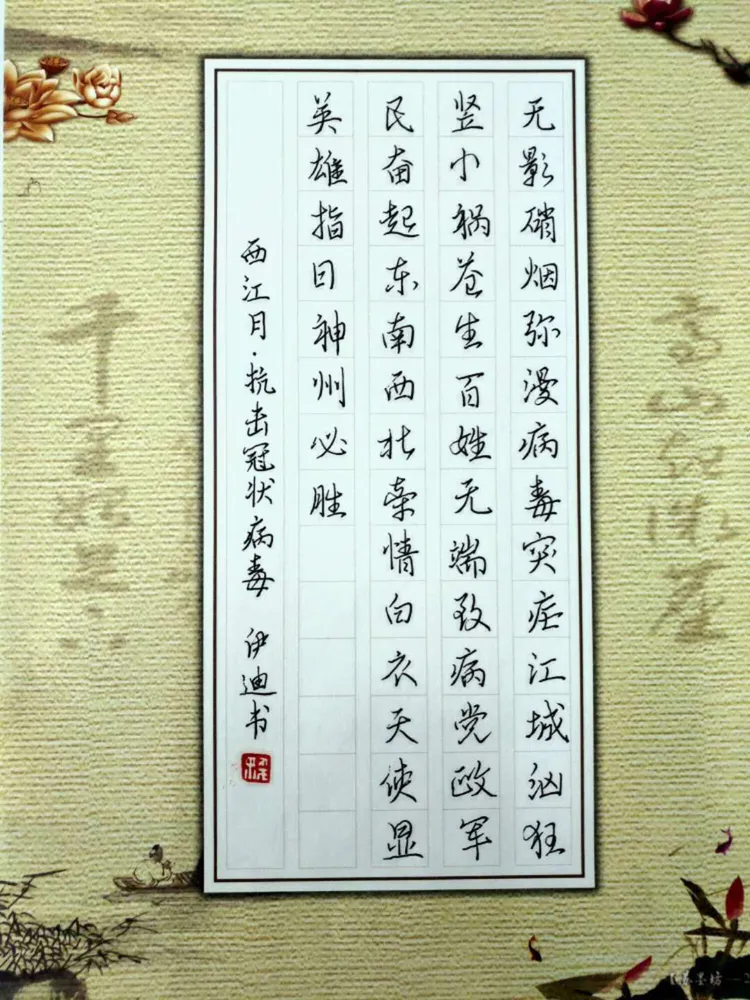 无影硝烟弥漫病毒突症江城汹狂
竖小祸苍生百姓无端致病党政军
民奋起东南西北牵情白衣天使显
英雄指日神州必胜
西江月·抗击冠状病毒 伊迪书